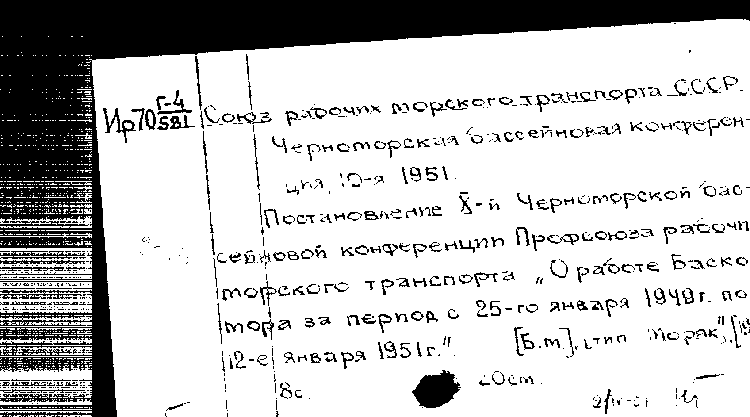 Ир70 Г-4/581 Союз рабочих морского транспорта СССР.
Черноморская бассейновая конферен-
ция, 10-я 1951.
Постановление X-й Черноморской бас-
сейновой конференции Профсоюза рабочи
морского транспорта „О работе Баско
мора за период с 25-го января 1949г. по
12-е января 1951г.". [Б.м], тип "Моряк", [19
8с. 20см.